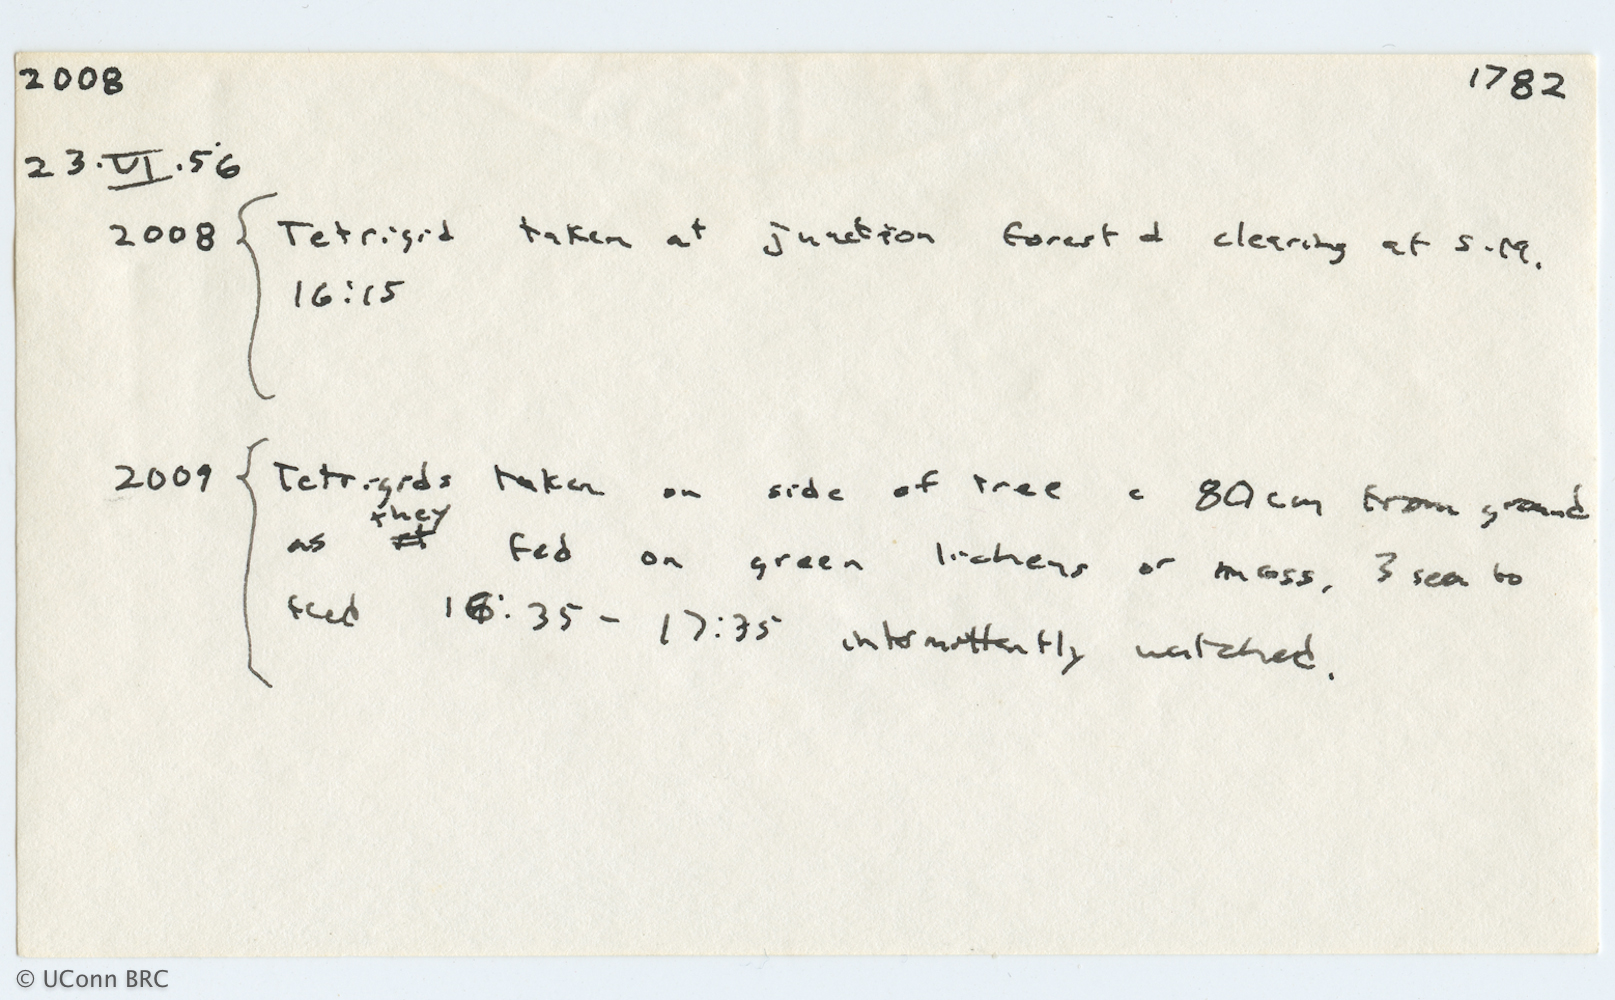 2008 1782
23.VI.56
2008 { Tetrigid taken at junction forest & clearing at S.M.
16:15
2009 { Tetrigids taken on side of tree c 80cm from ground
as they fed on green lichens or moss, 3 seen to
feed 16:35 - 17:35 intermittently watched.
© UConn BRC